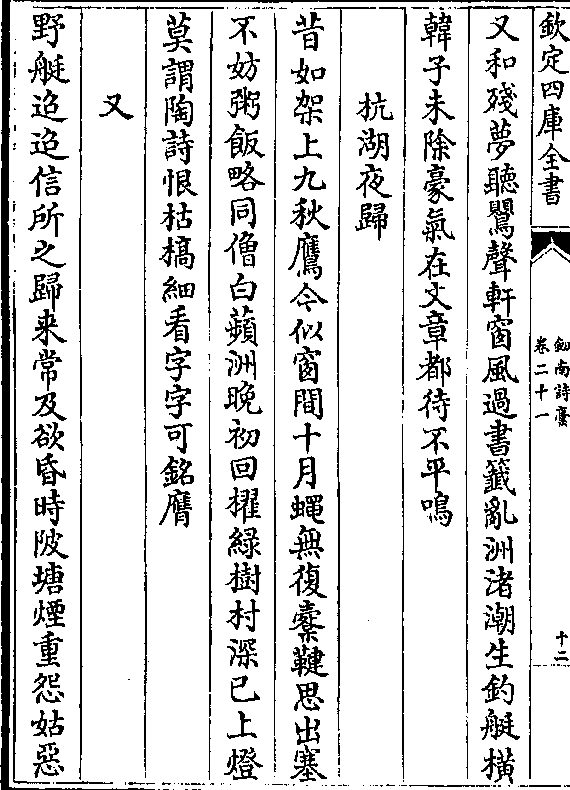 欽定四庫全書
劔南詩藁
卷二十一
十二
又和殘夢聽鸎聲軒窗風過書籤亂洲渚潮生釣艇橫
韓子未除豪氣在文章都待不平鳴
杭湖夜歸
昔如架上九秋鷹今似窗間十月蠅無復櫜鞬思出塞
不妨粥飯略同僧白蘋洲晚初回櫂綠樹村深已上燈
莫謂陶詩恨枯槁細看字字可銘膺
又
野艇迢迢信所之歸来常及欲昏時陂塘煙重怨姑惡